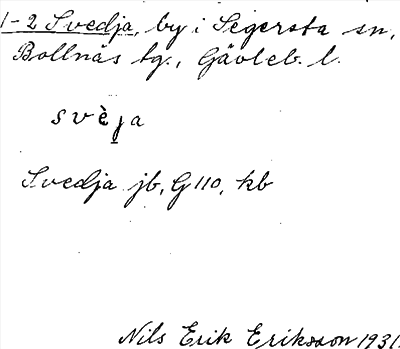 1-2 Svedja, by i Segersta sn,
Bollnäs tg., Gävleb. l.
svèja
Svedja jb, G 110, kb
Nils Erik Eriksson 1931.